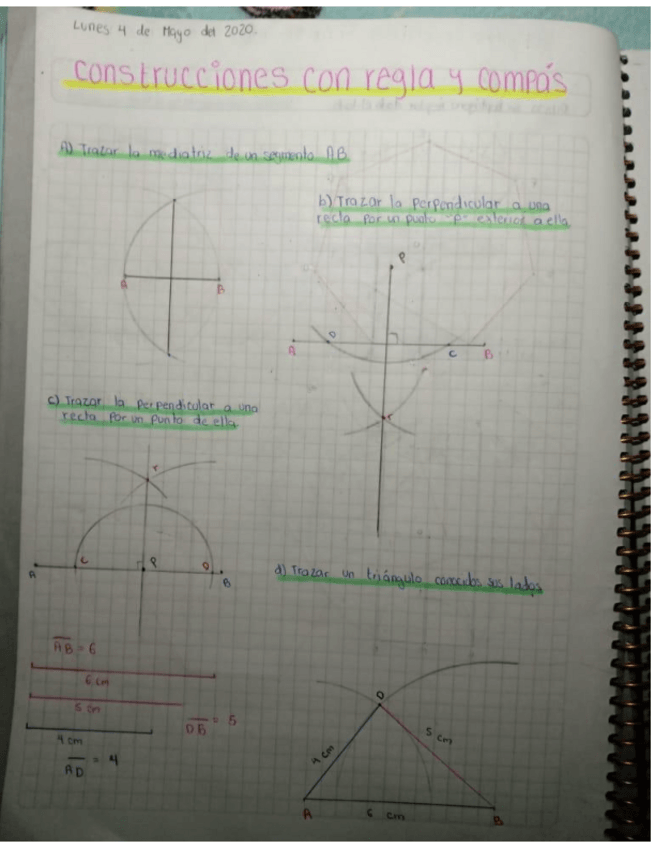 Lunes 4 de Mayo del 2020.
Construcciones con regla y compás
A) Trazar la mediatriz de un segmento AB.
A
B
b) Trazar la perpendicular a una
recta por un punto "P" exterior a ella
P
A
D
C
B
r
c) Trazar la perpendicular a una
recta por un punto de ella
r
A
C
P
D
B
d) Trazar un triángulo conocidos sus lados
AB = 6
6 cm
5 cm
DB = 5
4 cm
AD = 4
D
4 cm
5 cm
A
6 cm
B